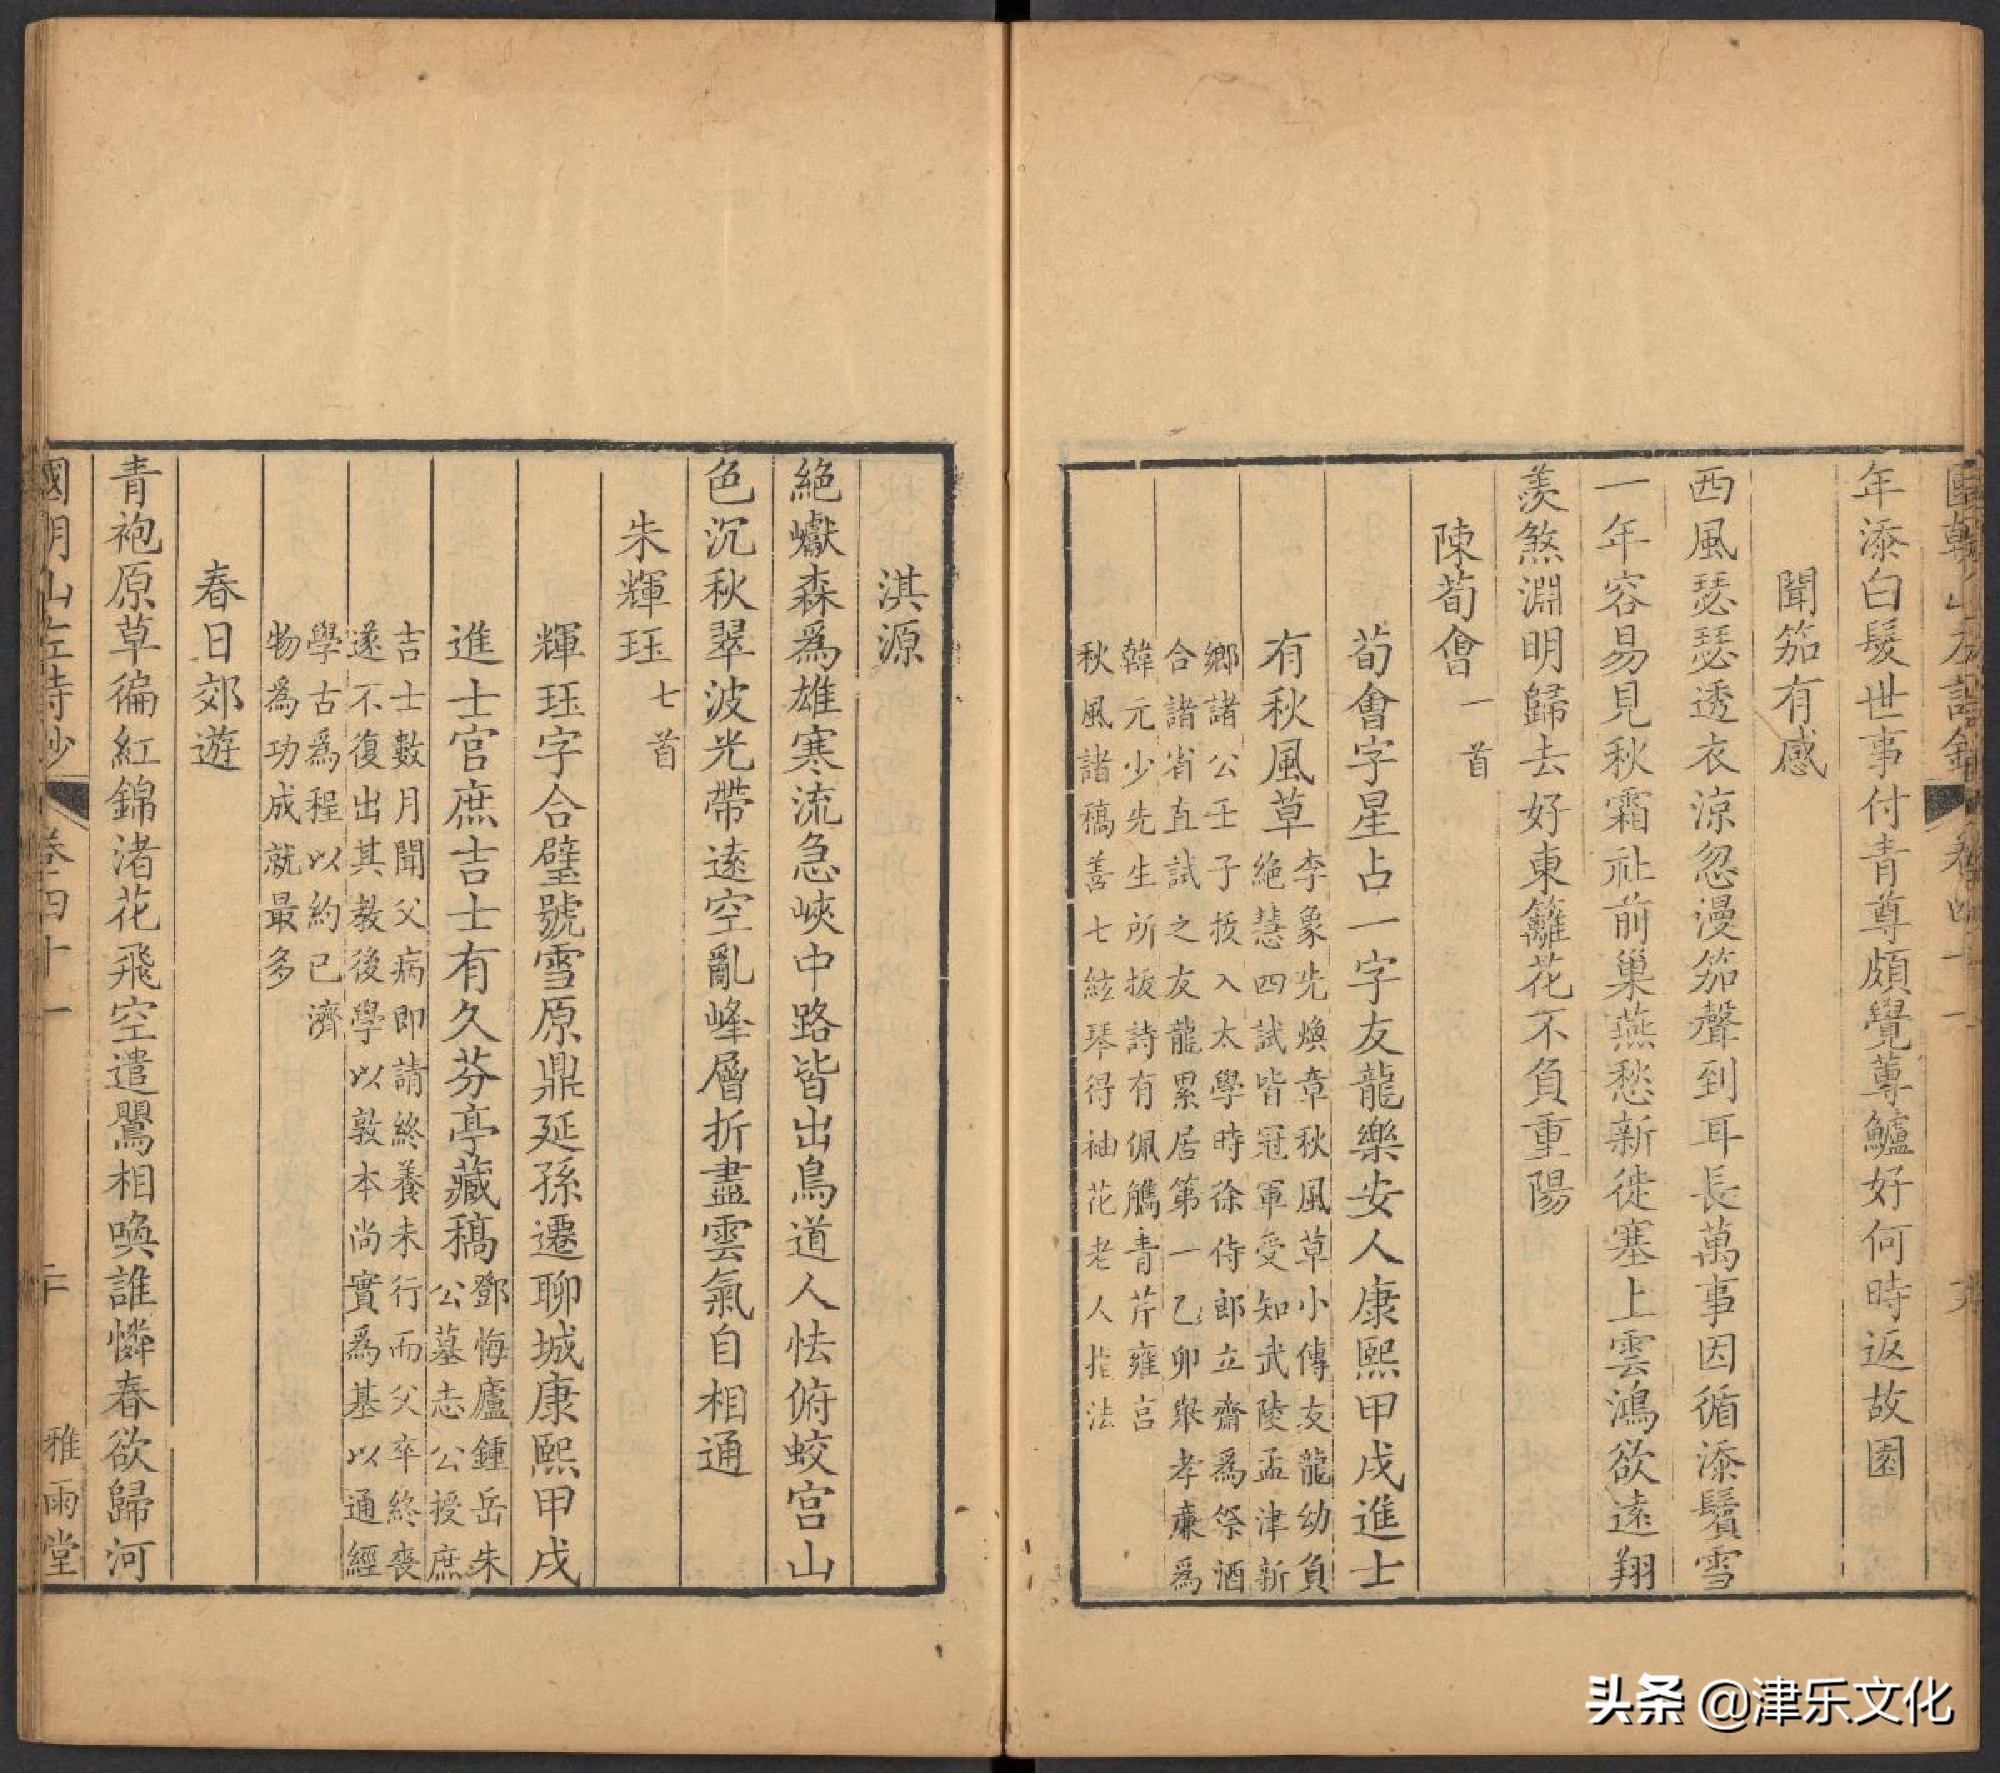 國朝山左詩鈔 卷四十一
年添白髮世事付青尊頗覺蓴鱸好何時返故園
聞笳有感
西風瑟瑟透衣涼忽漫笳聲到耳長萬事因循添鬢雪
一年容易見秋霜社前巢燕愁新徙塞上雲鴻欲遠翔
羨煞淵明歸去好東籬花不負重陽
陳荀會 一首
荀會字星占一字友龍樂安人康熙甲戌進士
有秋風草
李象先煥章秋風草小傳友龍幼負
絕慧四試皆冠軍受知武陵孟津新
鄉諸公壬子拔入太學時徐侍郎立齋為祭酒
合諸省直試之友龍累居第一乙卯舉孝廉為
韓元少先生所拔詩有佩觿青芹雍宮
秋風諸稿善七絃琴得袖花老人指法
淇源
絕巘森為雄寒流急峽中路皆出鳥道人怯俯蛟宮山
色沉秋翠波光帶遠空亂峰層折盡雲氣自相通
朱輝珏 七首
輝珏字合璧號雪原鼎延孫遷聊城康熙甲戌
進士官庶吉士有久芬亭藏稿
鄧悔廬鍾岳朱
公墓志公授庶
吉士數月聞父病即請終養未行而父卒終喪
遂不復出其教後學以敦本尚實為基以通經
學古為程以約已濟
物為功成就最多
春日郊遊
青袍原草徧紅錦渚花飛空遣鸎相喚誰憐春欲歸河
國朝山左詩鈔 卷四十一 二十 雅雨堂
头条 @津乐文化